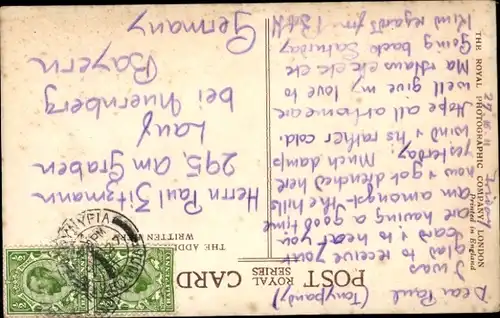 THE ROYAL PHOTOGRAPHIC COMPANY LONDON
Printed in England
POST CARD
ROYAL SERIES
THE ADDRESS
WRITTEN
(Tonypandy)
Dear Paul
I was
glad to receive your
card & to hear you
are having a good time
I am amongst the hills
now & got drenched here
yesterday. Much damp
wind & its rather cold.
Hope all at home are
well give my love to
Ma Klaus etc etc
Going back Saturday
Kind regards from
Herrn Paul Zitzmann
295, Am Graben
Lauf
bei Nuernberg
Bayern
Germany